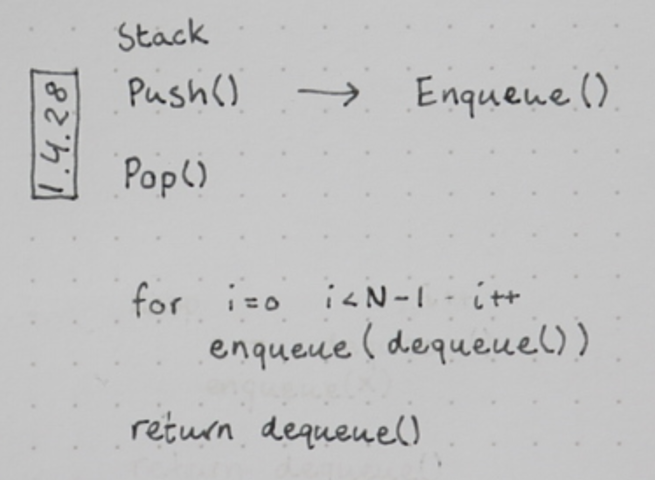 Stack
1.4.28
Push() → Enqueue()
Pop()
for i=0 i<N-1 i++
enqueue(dequeue())
return dequeue()